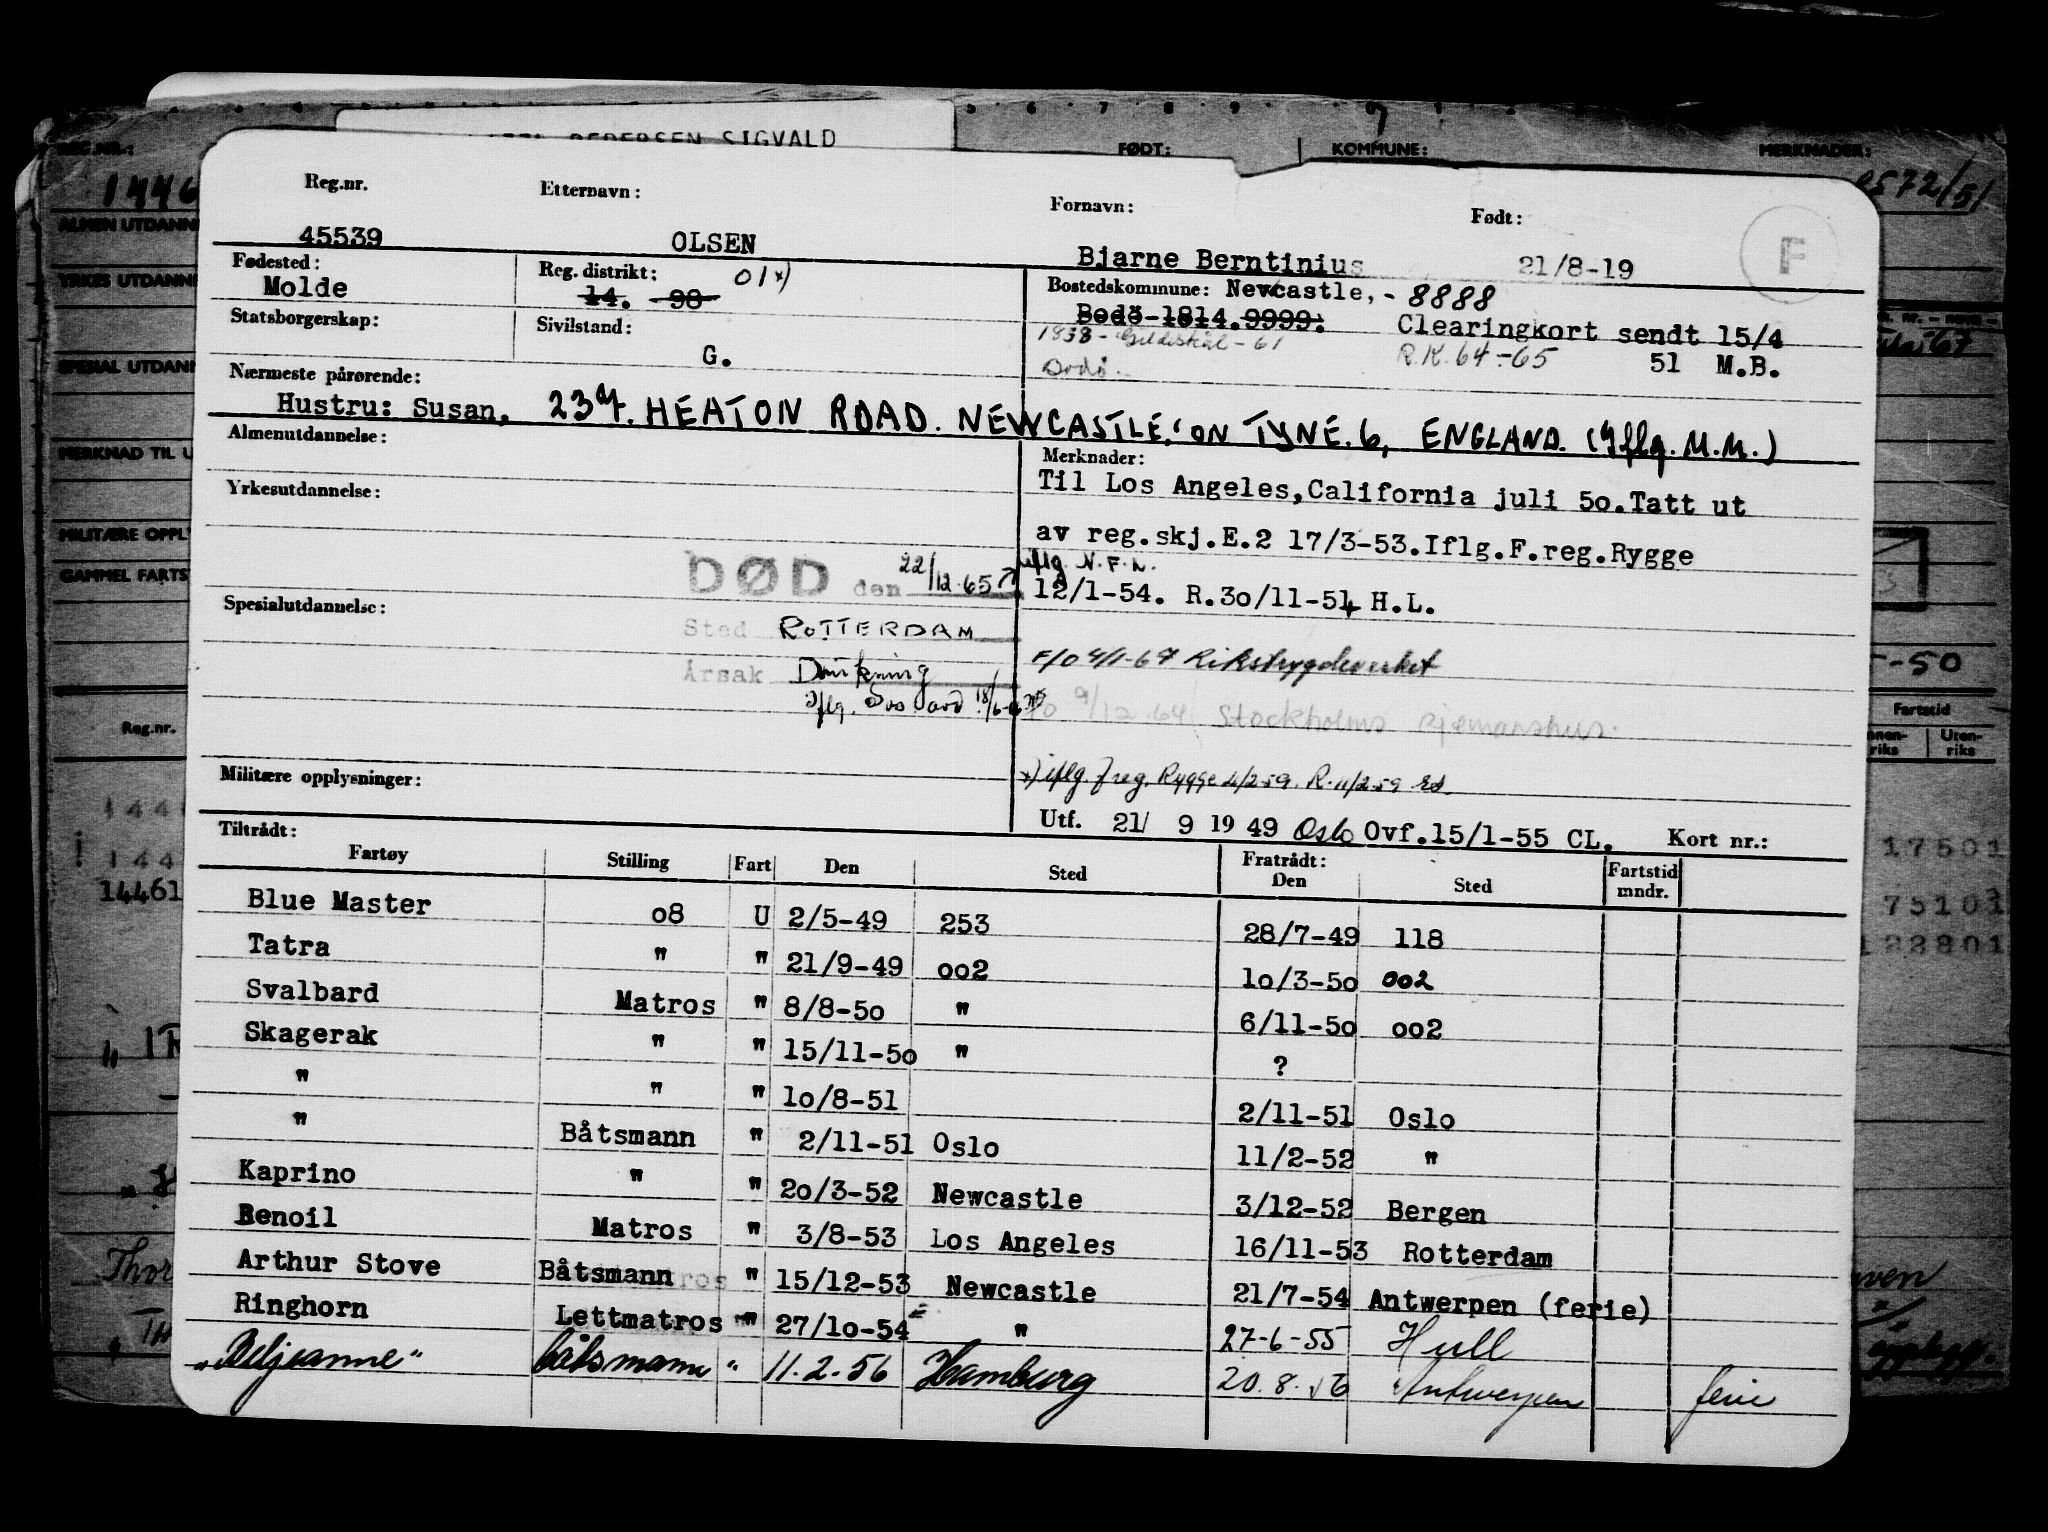 PEDERSEN SIGVALD
FØDT: KOMMUNE: MERKNADER:
1446
ALMEN UTDANN
YRKES UTDANNE
SPESIAL UTDANN
MERKNAD TIL U
MILITÆRE OPPL
GAMMEL FARTS
Reg.nr.
14461
Reg.nr. Etternavn: Fornavn: Født:
45539 OLSEN Bjarne Berntinius 21/8-19 F
Fødested: Reg. distrikt: 01 x) Bostedskommune: Newcastle,- 8888
Molde 14. 98 Bodö-1814.9999. Clearingkort sendt 15/4
Statsborgerskap: Sivilstand: 1938 - Gildeskål - 61 R.K. 64-65 51 M.B.
G. Bodø.
Nærmeste pårørende:
Hustru: Susan, HEATON ROAD. NEWCASTLE, ON TYNE. 6, ENGLAND. (Iflg. M.M.)
Almenutdannelse: Merknader:
Til Los Angeles,California juli 50.Tatt ut
Yrkesutdannelse:
av reg.skj.E.2 17/3-53.Iflg.F.reg.Rygge
DØD den 22/12.65 iflg. N.F.L.
12/1-54. R.3o/11-54 H.L.
Spesialutdannelse:
Sted ROTTERDAM
F/O 4/1-67 Rikstrygdeverket
Årsak Drukning
9/12.64 Stockholms Sjømanshus.
Militære opplysninger: x) iflg. f reg. Rygge 4/2-59. R. 11/2-59
Utf. 21/ 9 19 49 Oslo Ovf.15/1-55 CL. Kort nr.:
Tiltrådt: Fratrådt:
Fartøy Stilling Fart Den Sted Den Sted Fartstid mndr.
Blue Master o8 U 2/5-49 253 28/7-49 118
Tatra " " 21/9-49 oo2 1o/3-5o 002
Svalbard Matros " 8/8-5o " 6/11-5o oo2
Skagerak " " 15/11-5o " ?
" " " 1o/8-51 2/11-51 Oslo
" Båtsmann " 2/11-51 Oslo 11/2-52 "
Kaprino " " 2o/3-52 Newcastle 3/12-52 Bergen
Renoil Matros " 3/8-53 Los Angeles 16/11-53 Rotterdam
Arthur Stove Båtsmann " 15/12-53 Newcastle 21/7-54 Antwerpen (ferie)
Ringhorn Lettmatros " 27/1o-54 " 27-6-55 Hull
"Beljeanne" båtsmann " 11.2.56 Hamburg 20.8.56 Antwerpen ferie
Fartstid
17501
75101